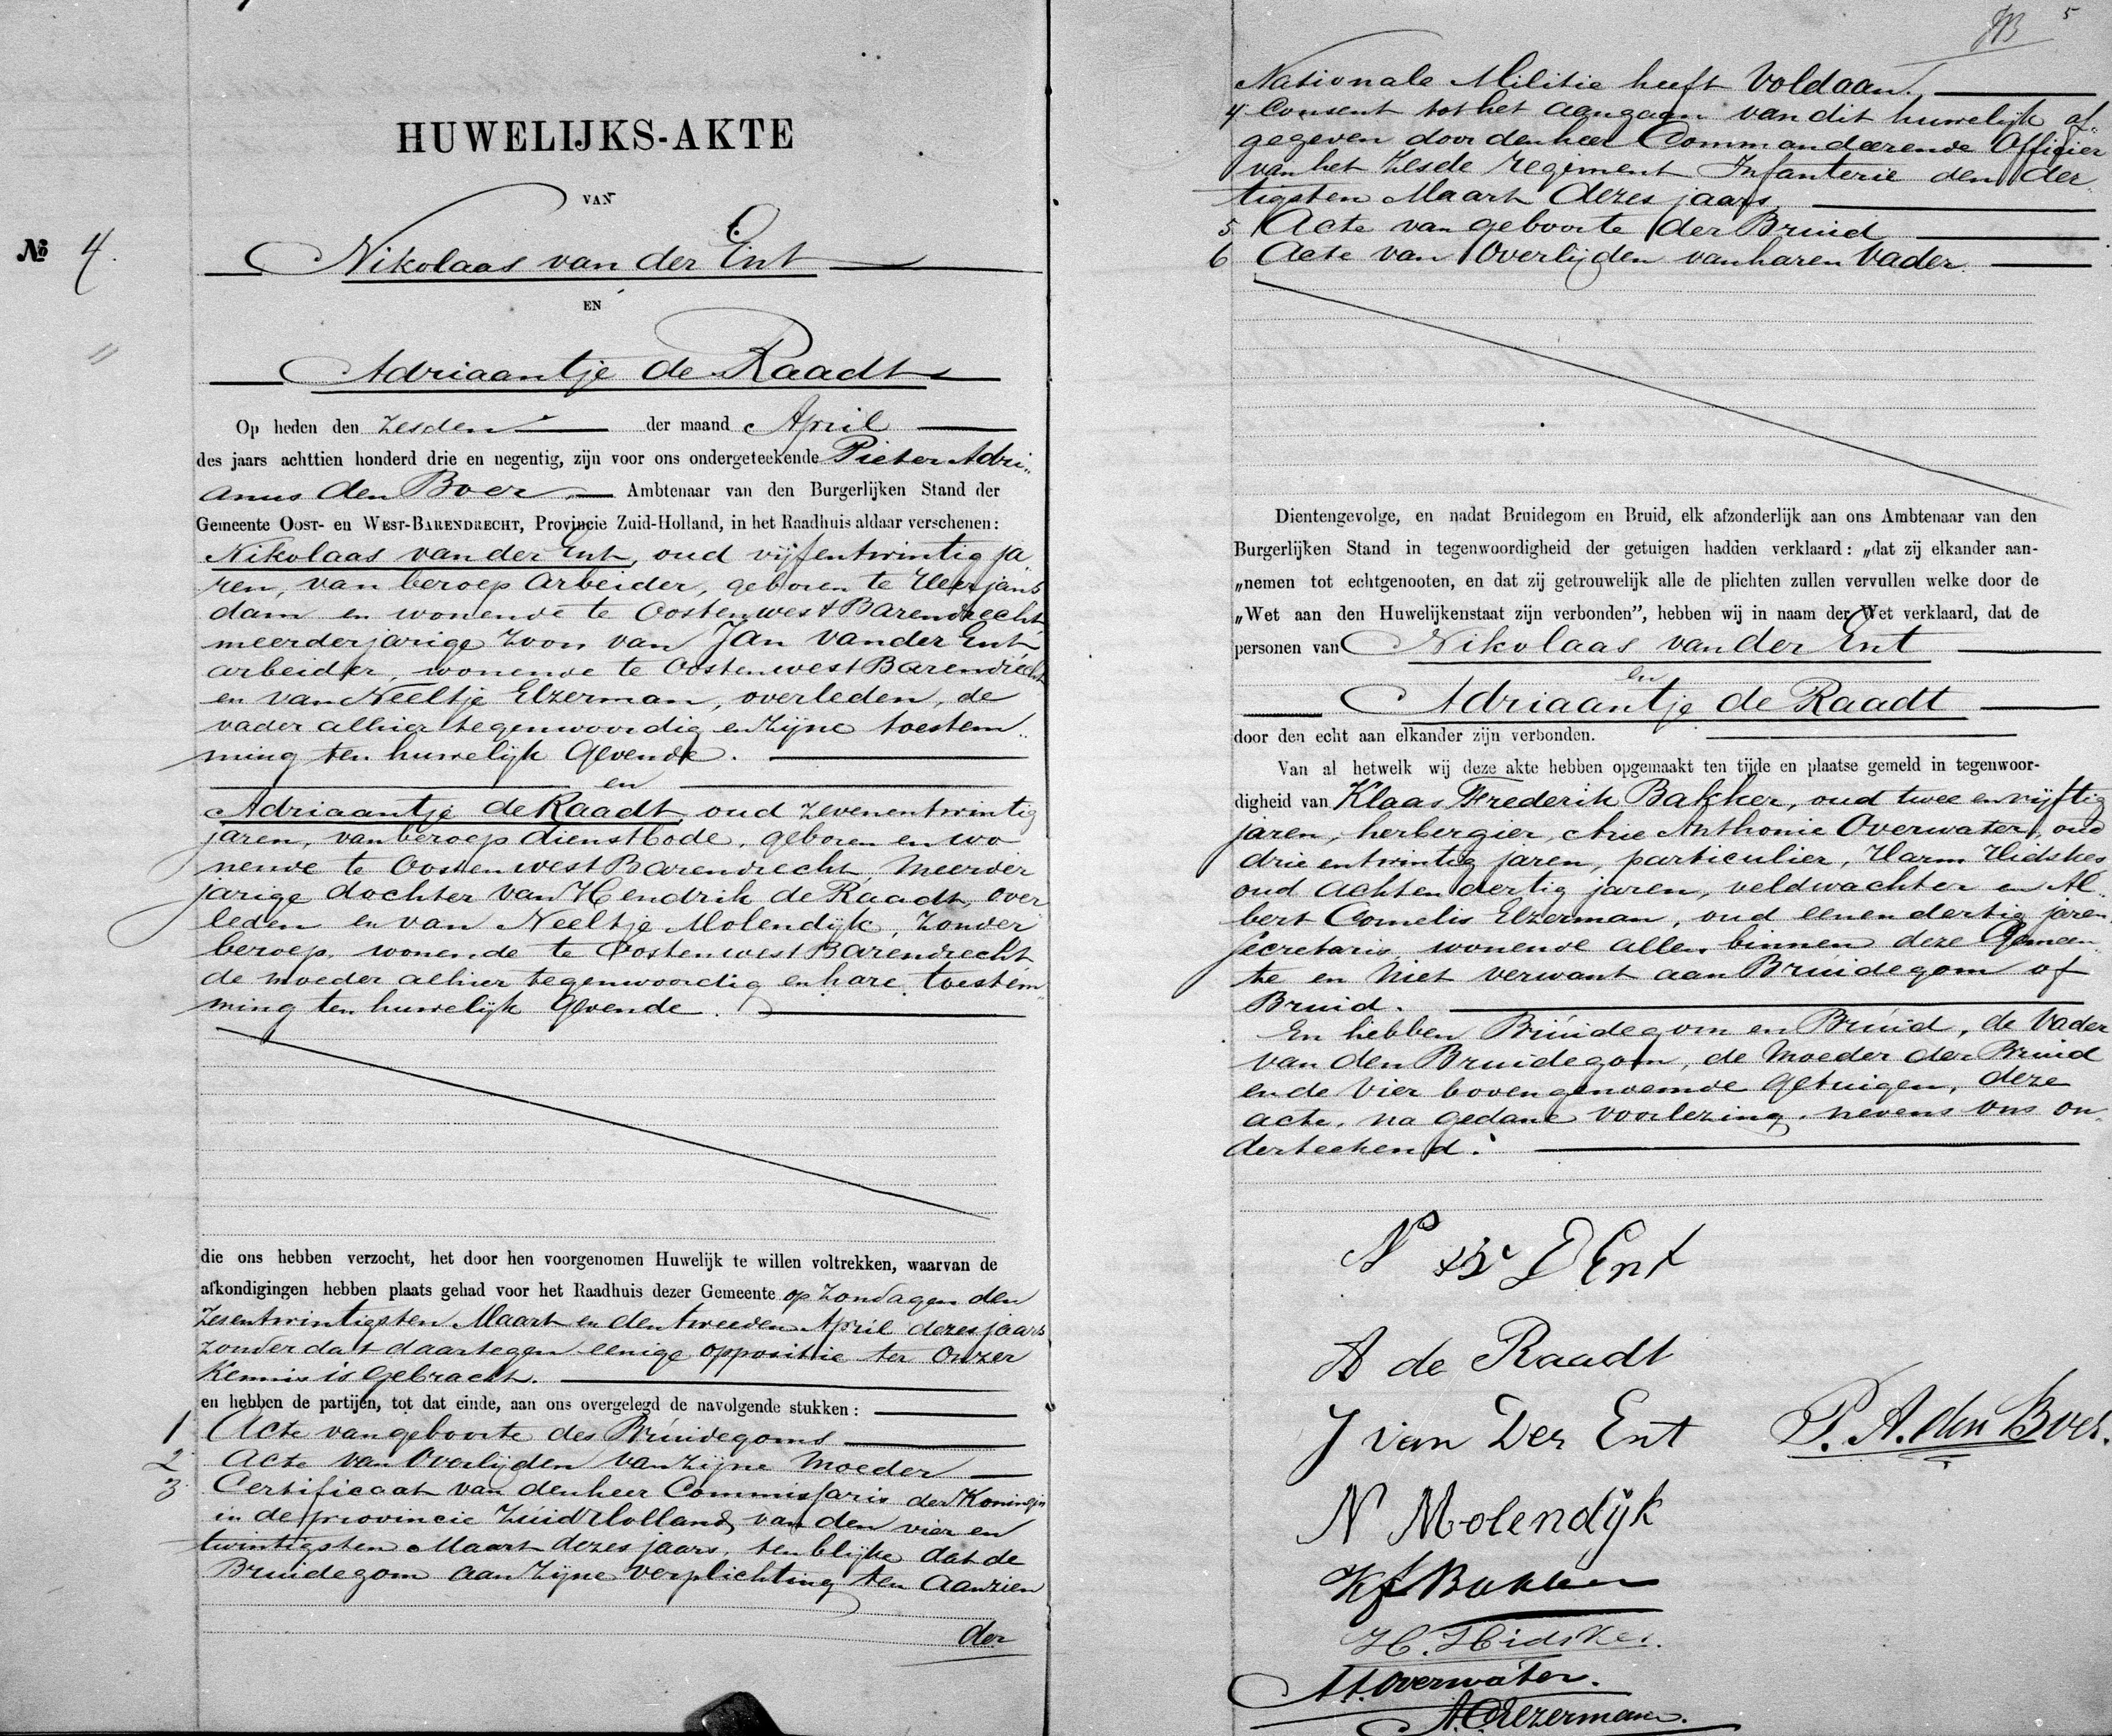 HUWELIJKS-AKTE
VAN
№ 4.
Nikolaas van der Ent
EN
Adriaantje de Raadt
Op heden den zesden der maand April
des jaars achttien honderd drie en negentig, zijn voor ons ondergeteekende Pieter Adri„
anus den Boer, Ambtenaar van den Burgerlijken Stand der
Gemeente OOST- en WEST-BARENDRECHT, Provincie Zuid-Holland, in het Raadhuis aldaar verschenen:
Nikolaas van der Ent, oud vijfentwintig ja
ren, van beroep arbeider, geboren te Heerjans
dam en wonende te Oost en west Barendrecht
meerderjarige zoon van Jan van der Ent
arbeider, wonende te Oost en west Barendrecht
en van Neeltje Elzerman, overleden, de
vader alhier tegenwoordig en zijne toestem„
ming ten huwelijk gevende.
en
Adriaantje de Raadt oud zevenentwintig
jaren, van beroep dienstbode, geboren en wo
nende te Oost en west Barendrecht, meerder
jarige dochter van Hendrik de Raadt, over
leden en van Neeltje Molendijk, zonder
beroep, wonende te Oost en west Barendrecht
de moeder alhier tegenwoordig en hare toestem„
ming ten huwelijk gevende.
die ons hebben verzocht, het door hen voorgenomen Huwelijk te willen voltrekken, waarvan de
afkondigingen hebben plaats gehad voor het Raadhuis dezer Gemeente op Zondagen den
zesentwintigsten Maart en den tweeden April dezes jaars
zonder dat daartegen eenige oppositie ter onzer
kennis is gebracht.
en hebben de partijen, tot dat einde, aan ons overgelegd de navolgende stukken:
1 Acte van geboorte des Bruidegoms
2 Acte van Overlijden van zijne Moeder
3 Certificaat van den heer Commissaris der Koningin
in de provincie Zuid Holland, van den vier en
twintigsten Maart dezes jaars, ten blijke dat de
Bruidegom aan zijne verplichting ten aanzien
der
5
Nationale Militie heeft voldaan.
4 Consent tot het aangaan van dit huwelijk af„
gegeven door den heer Commandeerende Officier
van het zesde regiment Infanterie den der
tigsten Maart dezes jaars,
5 Acte van geboorte der Bruid
6 Acte van Overlijden van haren Vader.
Dientengevolge, en nadat Bruidegom en Bruid, elk afzonderlijk aan ons Ambtenaar van den
Burgerlijken Stand in tegenwoordigheid der getuigen hadden verklaard: „dat zij elkander aan-
„nemen tot echtgenooten, en dat zij getrouwelijk alle de plichten zullen vervullen welke door de
„Wet aan den Huwelijkenstaat zijn verbonden”, hebben wij in naam der Wet verklaard, dat de
personen van Nikolaas van der Ent
en
Adriaantje de Raadt
door den echt aan elkander zijn verbonden.
Van al hetwelk wij deze akte hebben opgemaakt ten tijde en plaatse gemeld in tegenwoor-
digheid van Klaas Frederik Bakker, oud twee en vijftig
jaren, herbergier, Arie Anthonie Overwater, oud
drie entwintig jaren, particulier, Harm Hidskes
oud achtendertig jaren, veldwachter en Al„
bert Cornelis Elzerman, oud eenendertig jaren,
secretaris wonende allen binnen deze Gemeen
te en niet verwant aan Bruidegom of
Bruid.
En hebben Bruidegom en Bruid, de Vader
van den Bruidegom, de Moeder der Bruid
en de vier bovengenoemde getuigen, deze
acte, na gedane voorlezing, nevens ons on„
derteekend.
Ns v D Ent
A de Raadt
J van Der Ent
P. A. den Boer.
N Molendijk
KF Bakker
H. Hidskes.
A A. Overwater.
A C Elzerman.